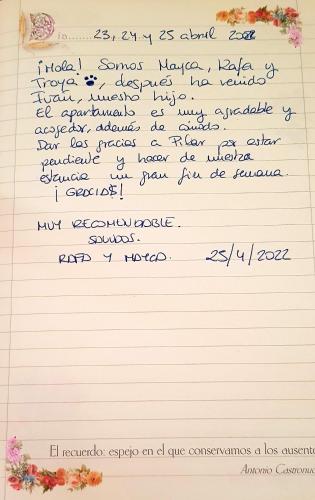 23, 24 y 25 abril 2022
¡Hola! Somos Mayca, Rafa y
Troya, después ha venido
Iván, nuestro hijo.
El apartamento es muy agradable y
acogedor, además de cuidado.
Dar las gracias a Pilar por estar
pendiente y hacer de nuestra
estancia un gran fin de semana.
¡GRACIAS!
MUY RECOMENDABLE.
SALUDOS.
RAFA Y MAYCA. 25/4/2022
El recuerdo: espejo en el que conservamos a los ausente
Antonio Castronuo